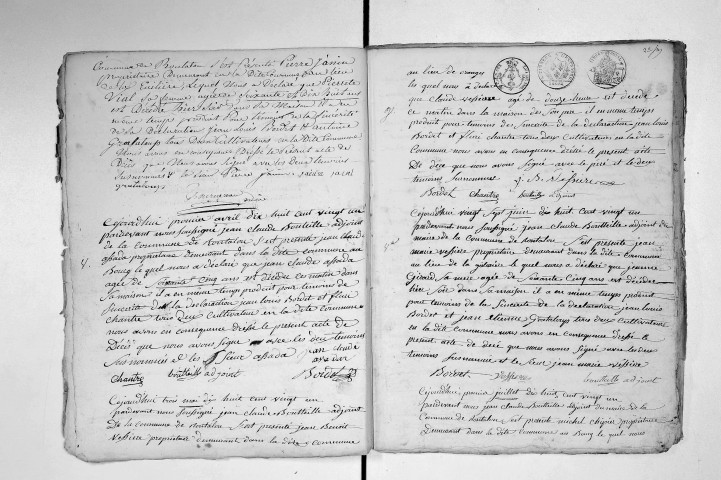 Commune de Boutalon S'est Présenté Pierre
propriétaire demeurant en la dite commune au lieu
lequel Nous a Déclaré que Pierrette
Vial Sa femme agée de Soixante et Dix huit ans
est Décédée hier Soir dans Sa Maison il a en
même temps produit pour temoins de la Sincerité
de la Declaration jean Louis Bordet et
Grataloup tous Deux Cultivateurs en la dite Commune
Nous avons en consequence Dressé le présent acte de
Décès que Nous avons Signé avec les Deux temoins
Susnommés
grataloup
Cejourd'hui premier avril dix huit cent vingt un
pardevant nous Soussigné jean Claude Boutteille adjoint
de la commune de Boutalon S'est présenté jean Claude
assada propriétaire demeurant dans la dite commune au
Bourg lequel nous a déclaré que jean Claude assada
agée de Soixante Cinq ans est décédé ce matin dans
Sa maison il a en même temps produit pour temoins de la
Sincerité de la declaration jean Louis Bordet et fleurie
chantre tous deux Cultivateurs en la dite commune
nous avons en consequence dressé le présent acte de
Décès que nous avons Signé avec les deux temoins
Sus nommés et le Sieur assada jean claude
assada
Chantre boutteille adjoint Bordet
Cejourd'hui trois mai dix huit cent vingt un
pardevant nous Soussigné jean Claude Boutteille adjoint
de la commune de Boutalon S'est présenté jean Benoit
vessiere propriétaire demeurant dans la dite commune
25
au lieu de
lequel nous a déclaré
que Claude vessiere agée de douze heures est décédé
ce matin dans la maison de Son pere il en même temps
produit pour temoins de la Sincerité de la déclaration jean Louis
Bordet et fleurie Chantre tous deux Cultivateurs en la dite
Commune nous avons en consequence dressé le présent acte
De décès que nous avons Signé avec le pere et les deux
temoins Susnommés J. B. Vessiere
Bordet Chantre boutteille adjoint
Cejourd'hui vingt Sept juin dix huit Cent vingt un
pardevant nous Soussigné jean Claude Boutteille adjoint du
maire de la Commune de Boutalon S'est présenté jean
marie vessiere propriétaire demeurant dans la dite Commune
au lieu de la lequel nous a déclaré que jeanne
Girard Sa mere agée de Soixante Cinq ans est décédée
hier Soir dans Sa maison il a en même temps produit
pour temoins de la Sincerité de la declaration jean Louis
Bordet et jean etienne Grataloup tous deux Cultivateurs
en la dite Commune nous avons en consequence dressé le
présent acte de décès que nous avons Signé avec les deux
temoins Susnommés et le Sieur jean marie vessiere
Bordet Vessiere boutteille adjoint
Cejourd'hui premier juillet dix huit cent vingt un
pardevant nous jean Claude Boutteille adjoint du maire de la
Commune de Boutalon est présenté michel propriétaire
Demeurant dans la dite Commune au Bourg lequel nous